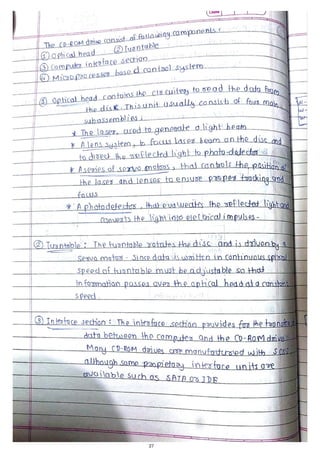 The CD-ROM drive consist of following components:
① Optical head ② Turntable
③ Computer interface section
④ Microprocessor based control system
① Optical head contains the circuitry to read the data from
the disk. This unit usually consists of four main
subassemblies:
* The laser, used to generate a light beam
* A lens system, to focus laser beam on the disc and
to direct the reflected light to photo-detector
* A series of servo motors, that controls the position of
the laser and lenses to ensure proper tracking and
focus
* A photodetector, that evaluates the reflected light and
converts the light into eletrical impulses.
② Turntable: The turntable rotates the disc and is driven by a
Servo motor. Since data is written in continuous spiral
Speed of turntable must be adjustable so that
Information passes over the optical head at a constant
speed.
③ Interface section: The interface section provides for the transfer
data between the computer and the CD-ROM drive.
Many CD-ROM drives are manufactured with SCSI
although some proprietary interface units are
available such as SATA or IDE
27